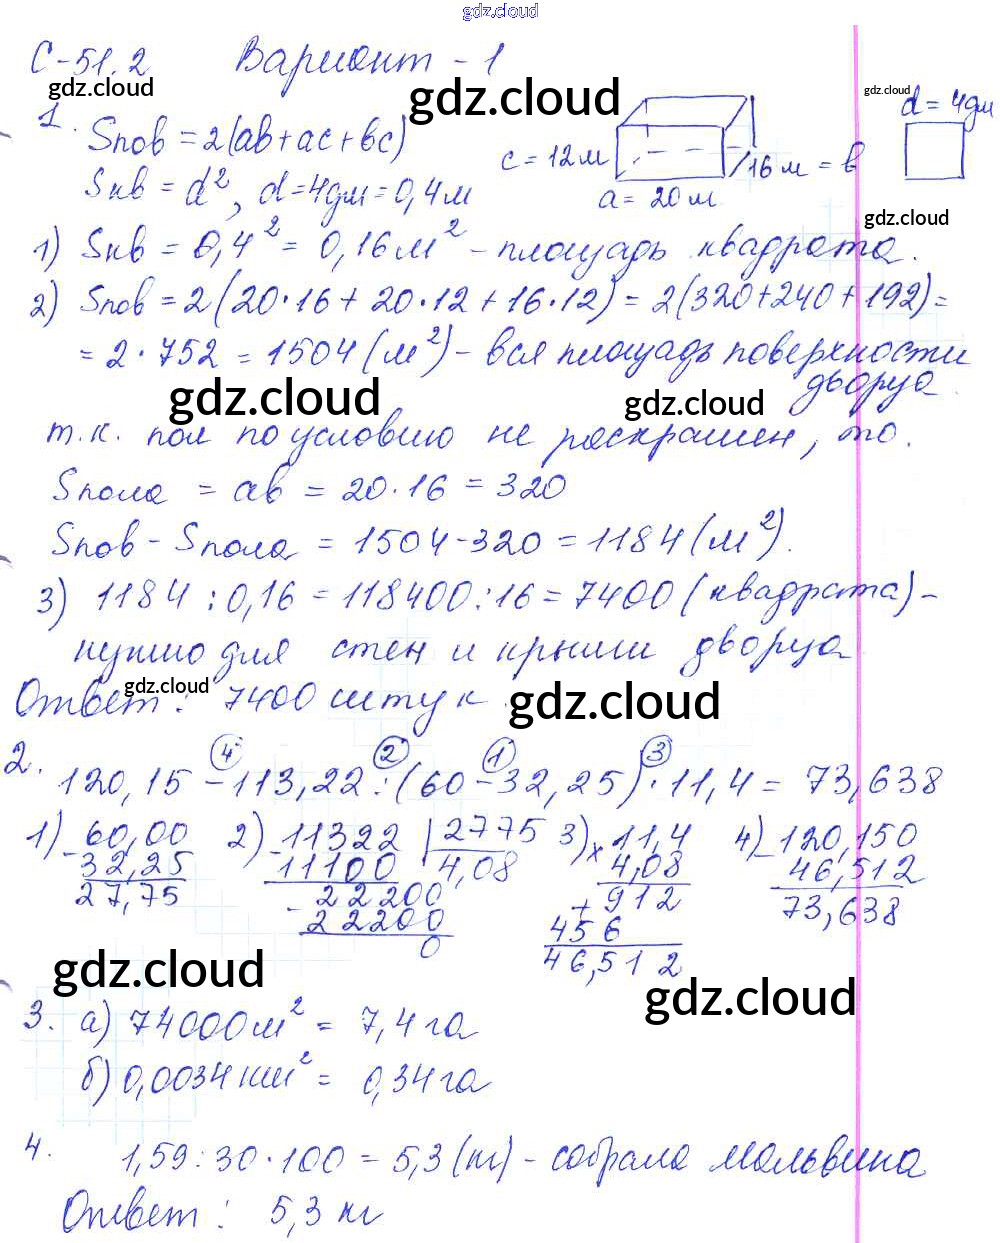 gdz.cloud
С-51.2 Вариант - 1
gdz.cloud gdz.cloud gdz.cloud
1. Sпов = 2(ab+ac+bc) c = 12м 16м = b a = 20м d = 4дм
Sкв = d², d=4дм=0,4м
gdz.cloud
1) Sкв = 0,4² = 0,16м² - площадь квадрата.
2) Sпов = 2(20·16 + 20·12 + 16·12) = 2(320+240+192)=
= 2·752 = 1504(м²) - вся площадь поверхности
дворца.
gdz.cloud gdz.cloud
т.к. пол по условию не раскрашен, то.
Sпола = ab = 20·16 = 320
Sпов - Sпола = 1504-320 = 1184(м²).
3) 1184 : 0,16 = 118400:16 = 7400 (квадрата) -
нужно для стен и крыши дворца
gdz.cloud
Ответ: 7400 штук
gdz.cloud
4 2 1 3
2. 120,15 - 113,22 : (60 - 32,25) · 11,4 = 73,638
1) 60,00 2) 11322 | 2775 3) × 11,4 4) 120,150
- 32,25 - 11100 4,08 4,08 - 46,512
27,75 22200 + 912 73,638
- 22200 456
0 46,512
gdz.cloud gdz.cloud
3. а) 74000м² = 7,4га
б) 0,0034км² = 0,34га
4. 1,59:30·100 = 5,3(кг) - собрала Мальвина
Ответ: 5,3 кг